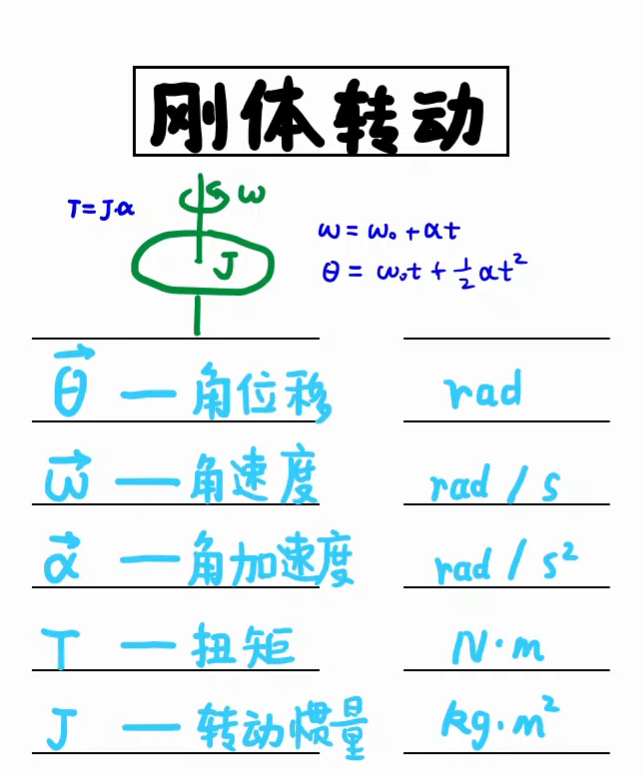 刚体转动
T=J·α
ω
J
ω = ω₀ + αt
θ = ω₀t + ½αt²
θ⃗ — 角位移 rad
ω⃗ — 角速度 rad / s
α⃗ — 角加速度 rad / s²
T — 扭矩 N·m
J — 转动惯量 kg·m²